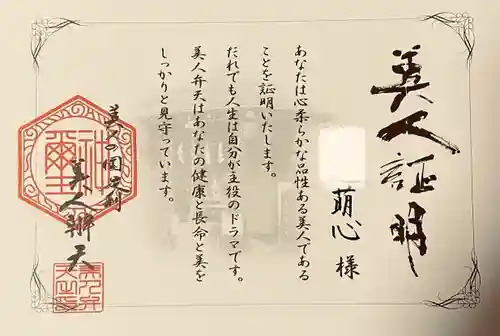 美人証明
萌心 様
あなたは心柔らかな品性ある美人である
ことを証明いたします。
だれでも人生は自分が主役のドラマです。
美人弁天はあなたの健康と長命と美を
しっかりと見守っています。
美人弁天